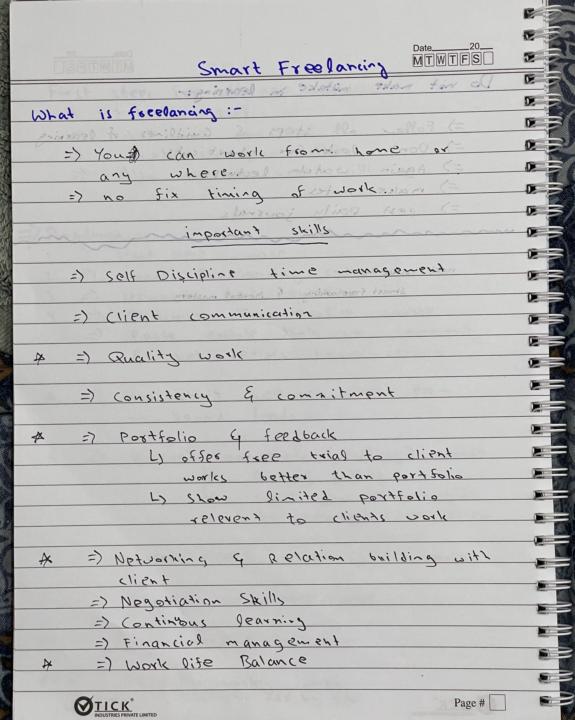 Date 20
M T W T F S
Smart Freelancing
What is freelancing :-
=> You can work from home or
any where
=> no fix timing of work.
important skills
=> Self Discipline time management
=> Client communication
☆ => Quality work
=> Consistency & commitment
☆ => Portfolio & feedback
↳ offer free trial to client
works better than portfolio
↳ show limited portfolio
relevent to clients work
☆ => Networking & Relation building with
client
=> Negotiation Skills
=> Continous learning
=> Financial management
☆ => Work life Balance
TICK
INDUSTRIES PRIVATE LIMITED
Page #